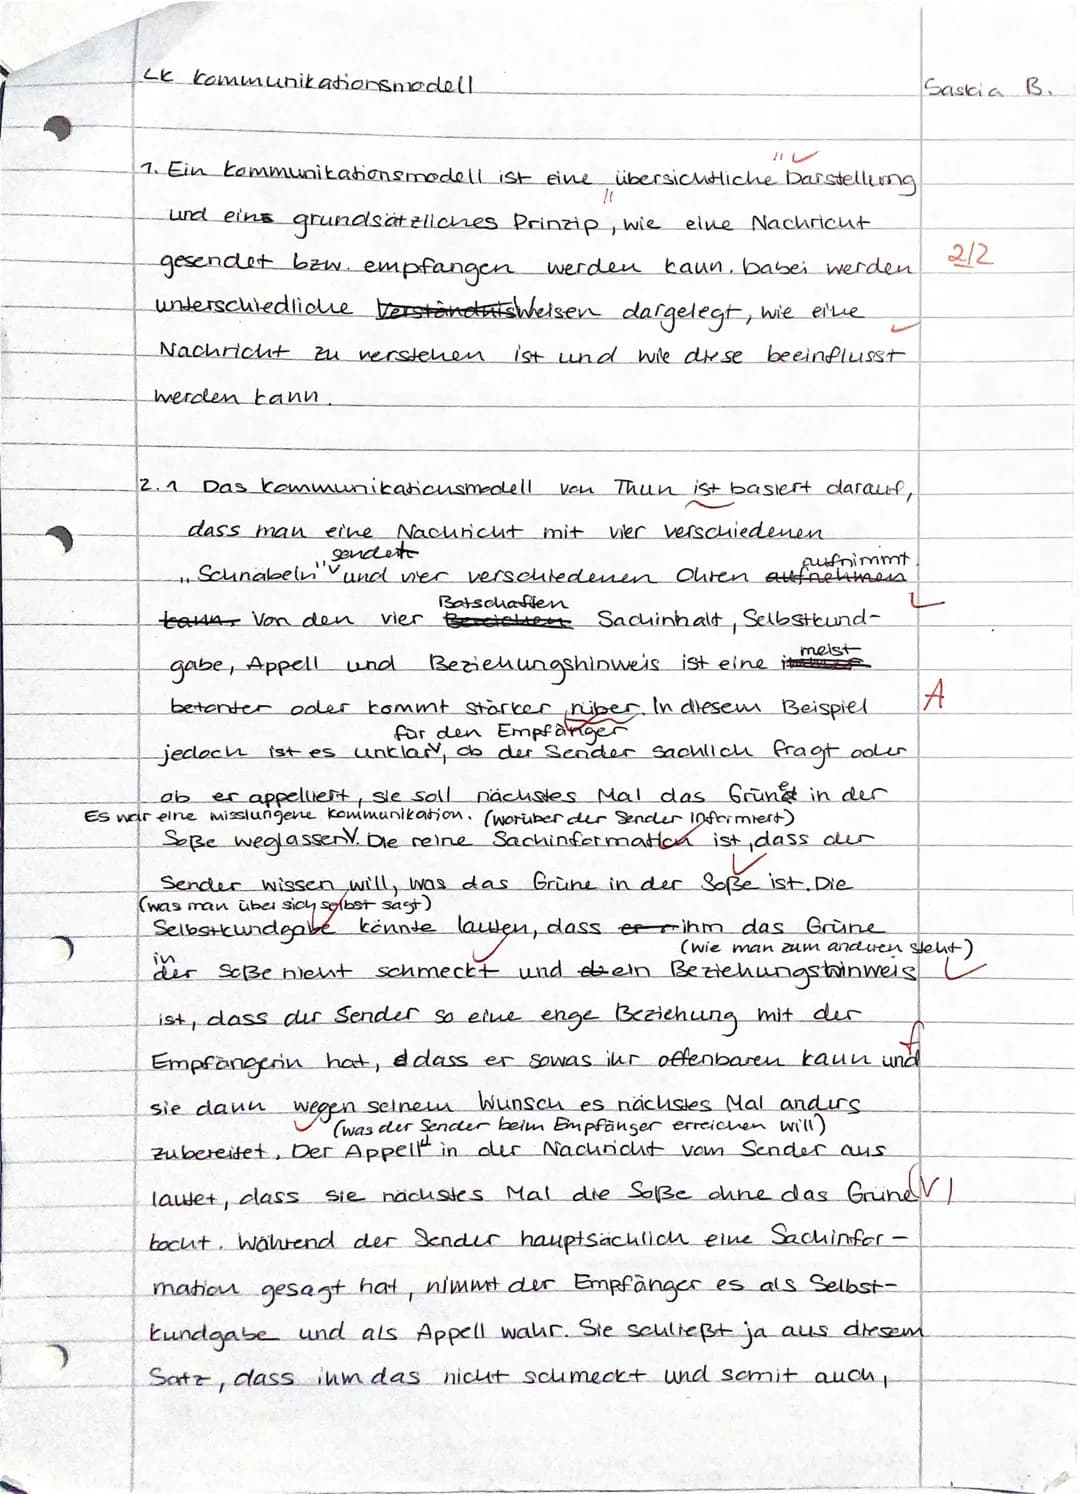 LK Kommunikationsmodell
Saskia B.
1. Ein Kommunikationsmodell ist eine "übersichtliche Darstellung
und eins grundsätzliches Prinzip", wie eine Nachricht
gesendet bzw. empfangen werden kann. Dabei werden
2/2
unterschiedliche Verständnisweisen dargelegt, wie eine
Nachricht zu verstehen ist und wie diese beeinflusst
werden kann.
2.1 Das Kommunikationsmodell von Thun ist basiert darauf,
dass man eine Nachricht mit vier verschiedenen
sendet
aufnimmt.
„Schnäbeln" und vier verschiedenen Ohren aufnehmen
Botschaften
kann. Von den vier Sachinhalt, Selbstkund-
meist
gabe, Appell und Beziehungshinweis ist eine
A
betonter oder kommt stärker rüber. In diesem Beispiel
für den Empfänger
jedoch ist es unklar, ob der Sender sachlich fragt oder
ob er appelliert, sie soll nächstes Mal das Grüne in der
Es war eine misslungene Kommunikation. (worüber der Sender informiert)
Soße weglassen. Die reine Sachinformation ist, dass der
Sender wissen will, was das Grüne in der Soße ist. Die
(was man über sich selbst sagt)
Selbstkundgabe könnte lauten, dass er ihm das Grüne
(wie man zum anderen steht)
in
der Soße nicht schmeckt und ein Beziehungshinweis
ist, dass der Sender so eine enge Beziehung mit der
f
Empfängerin hat, dass er sowas ihr offenbaren kann und
sie dann wegen seinem Wunsch es nächstes Mal anders
(was der Sender beim Empfänger erreichen will)
zubereitet. Der Appell in der Nachricht vom Sender aus
lautet, dass sie nächstes Mal die Soße ohne das Grüne
kocht. Während der Sender hauptsächlich eine Sachinfor-
mation gesagt hat, nimmt der Empfänger es als Selbst-
kundgabe und als Appell wahr. Sie schließt ja aus diesem
Satz, dass ihm das nicht schmeckt und somit auch,